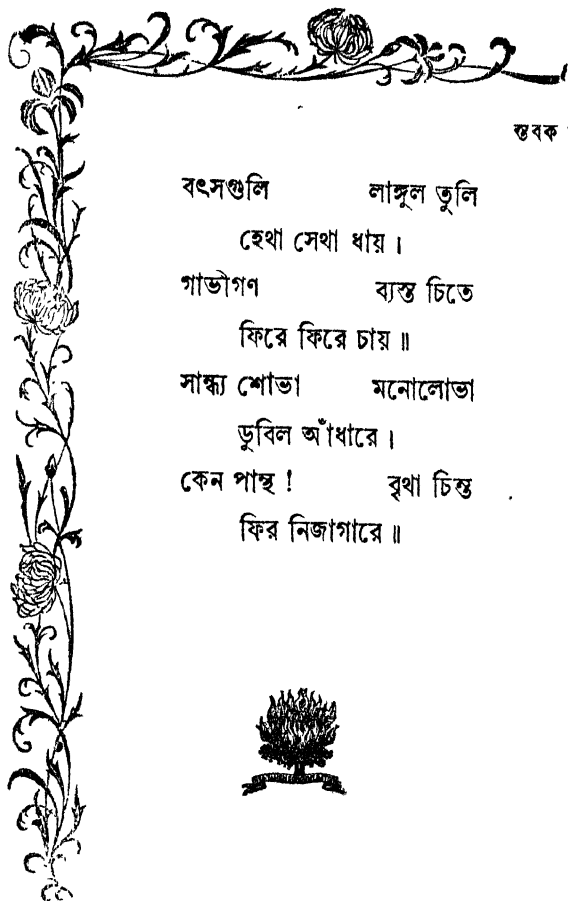 স্তবক
বৎসগুলি লাঙ্গুল তুলি
হেথা সেথা ধায়।
গাভীগণ ব্যস্ত চিতে
ফিরে ফিরে চায়॥
সান্ধ্য শোভা মনোলোভা
ডুবিল আঁধারে।
কেন পান্থ! বৃথা চিন্ত
ফির নিজাগারে॥